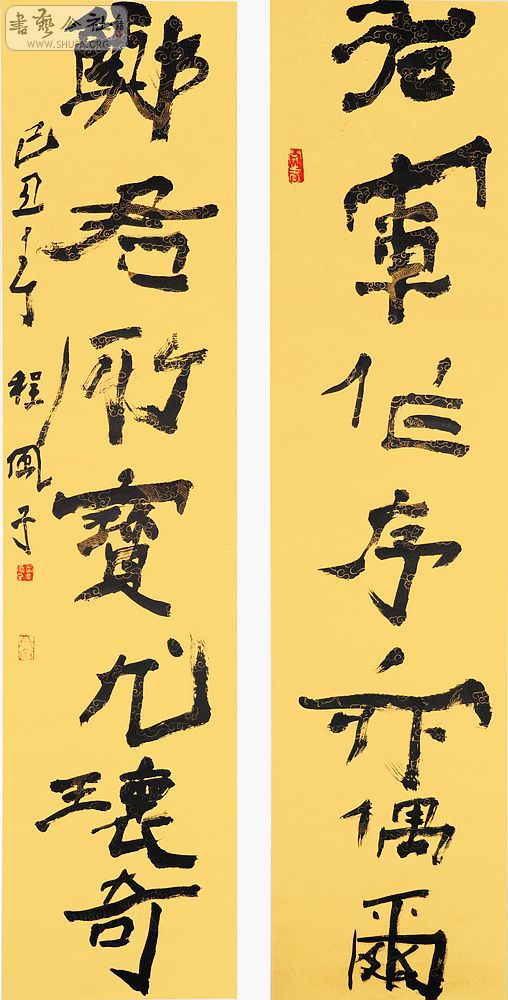 右軍作序亦偶爾
君所寶尤瓌奇
己丑年 程風子
書藝公社
WWW.SHUFA.ORG